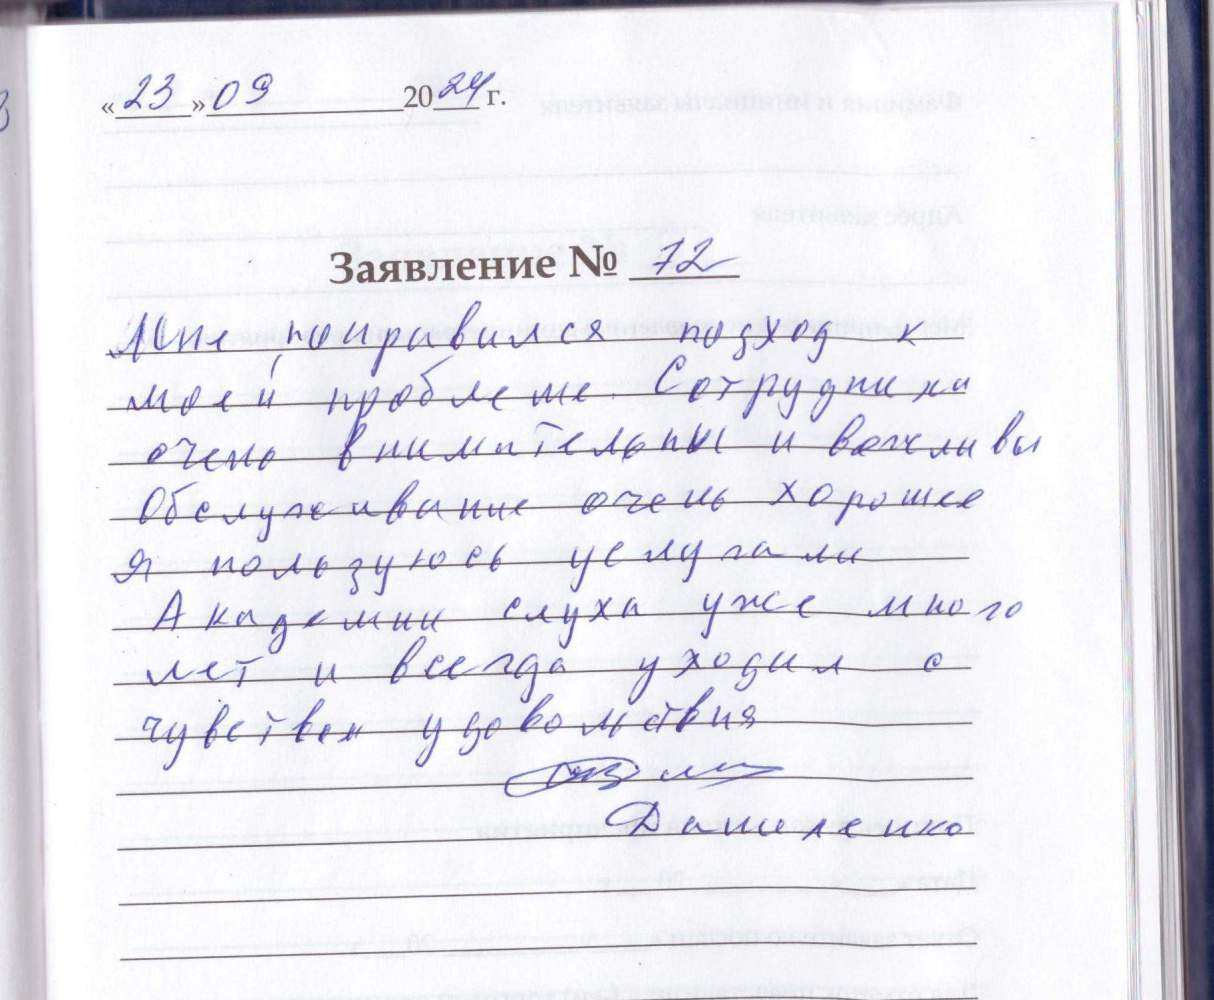 « 23 » 09 2024 г.
Заявление № 72
Мне понравился подход к
моей проблеме. Сотрудники
очень внимательны и вежливы
Обслуживание очень хорошее
Я пользуюсь услугами
Академии слуха уже много
лет и всегда уходил с
чувством удовольствия